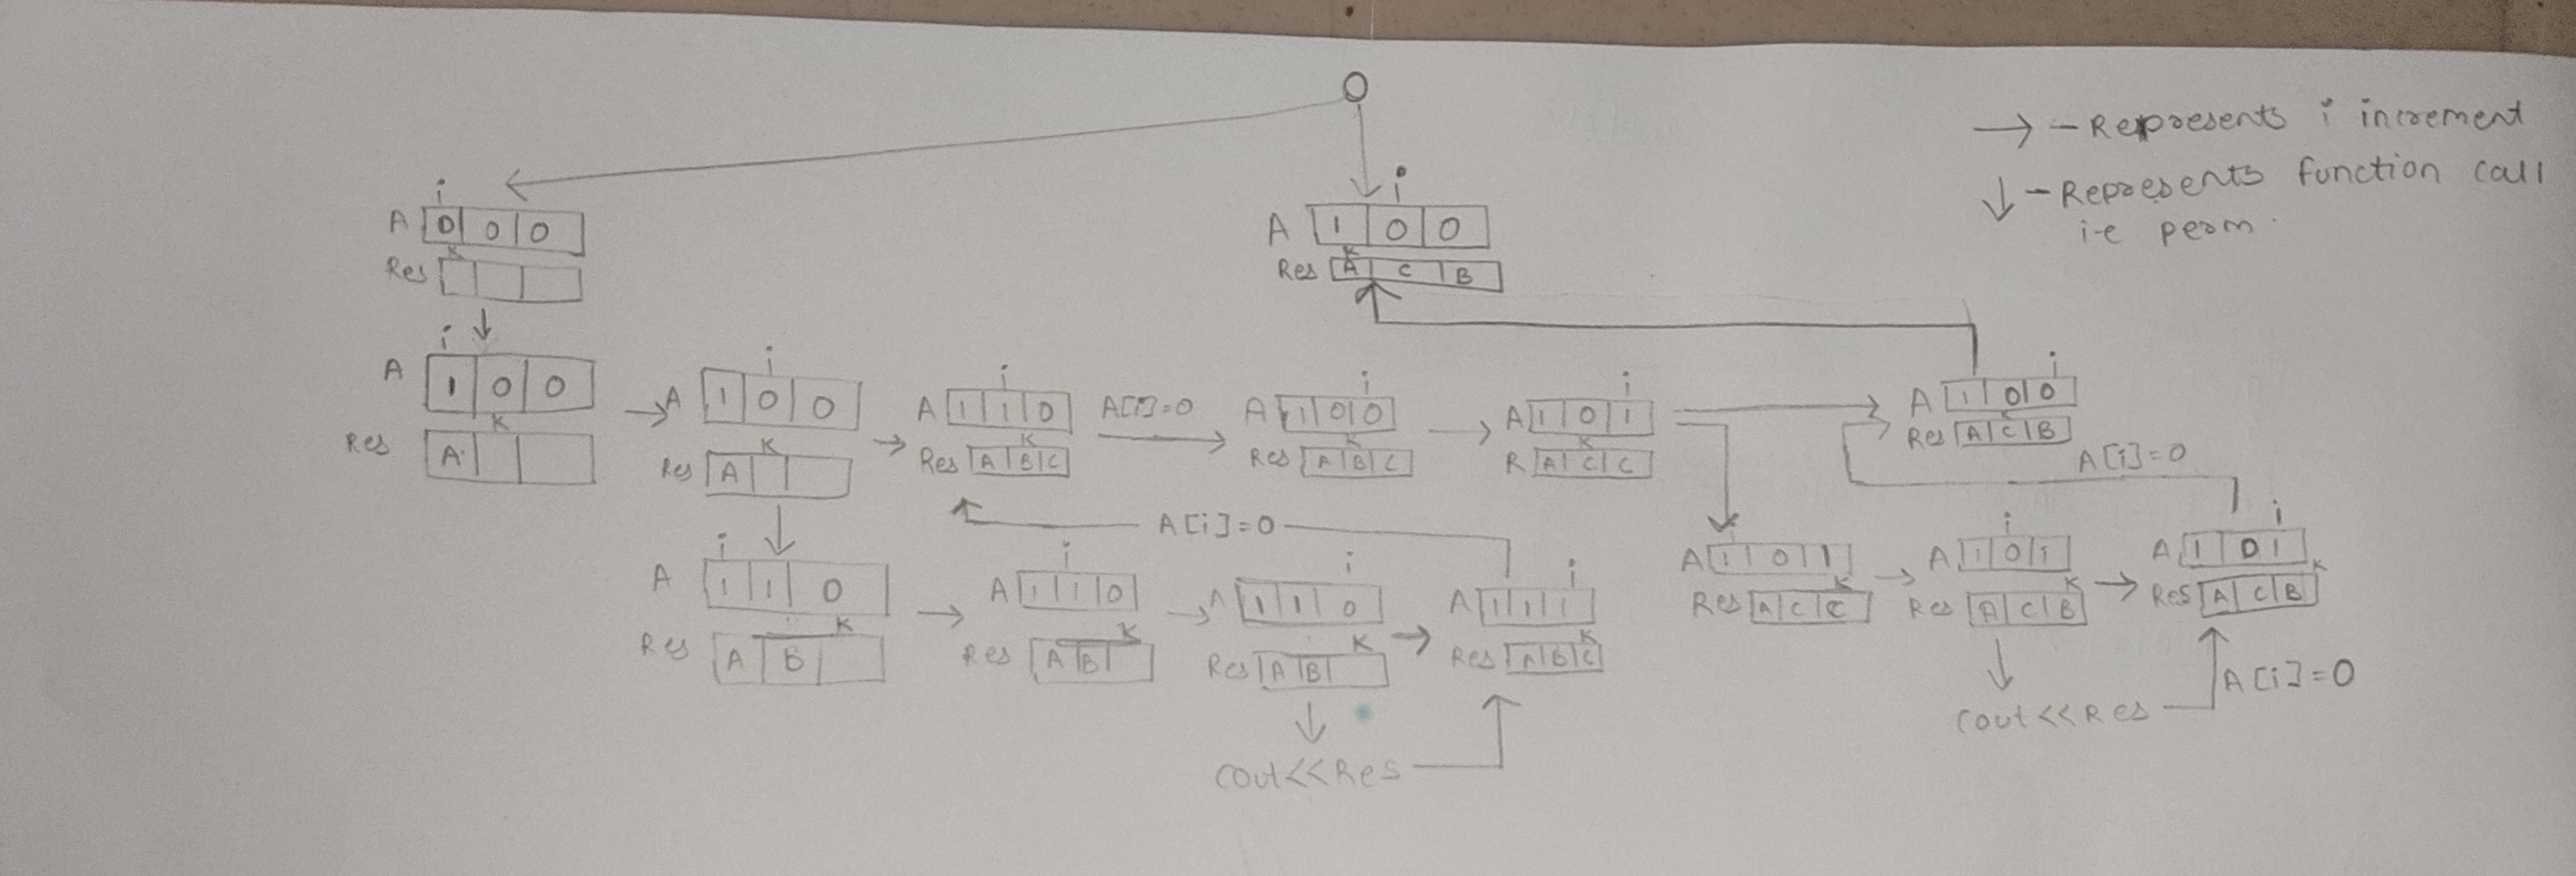 O
→ - Represents i increment
↓ - Represents function call
i-e perm.
i
A 0 0 0
K
Res
i
A 1 0 0
K
Res A C B
i
A 1 0 0
K
Res A
i
A 1 0 0
K
Res A
i
A 1 1 0
K
Res A B C
A[i]=0
i
A 1 0 0
K
Res A B C
i
A 1 0 1
K
R A C C
i
A 1 0 0
K
Res A C B
A[i]=0
A[i]=0
i
A 1 1 0
K
Res A B
i
A 1 1 0
K
Res A B
i
A 1 1 0
K
Res A B
i
A 1 1 1
K
Res A B C
i
A 1 0 1
K
Res A C C
i
A 1 0 1
K
Res A C B
i
A 1 0 1
K
Res A C B
cout<<Res
cout<<Res
A[i]=0